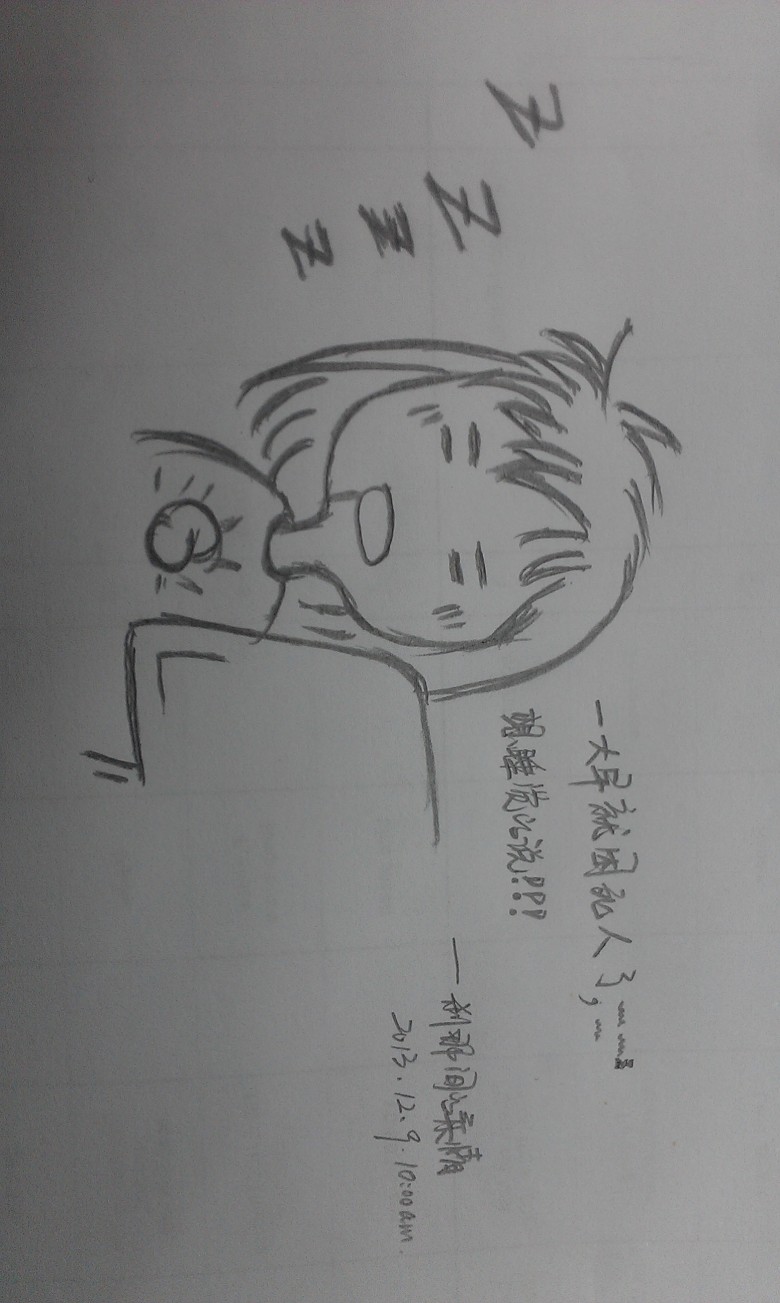 Z
Z
Z
Z
一大早就困死人了……
想睡觉么说!!!
—刹那间的柔情
2013.12.9.10:00am.